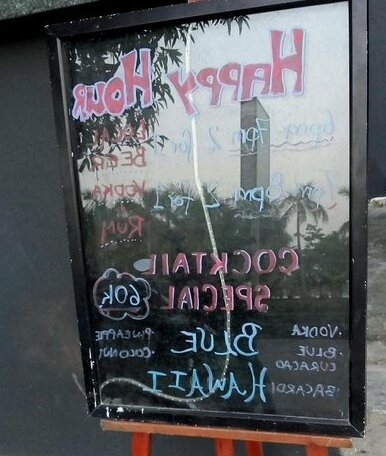 HAPPY HOUR
6pm 7pm 2 for 1
LOCAL
BEER
7pm 8pm 2 for 1
VODKA
RUM
COCKTAIL
SPECIAL
60K
BLUE
HAWAII
·VODKA
·BLUE
CURACAO
·BACARDI
·PINEAPPLE
·COCONUT